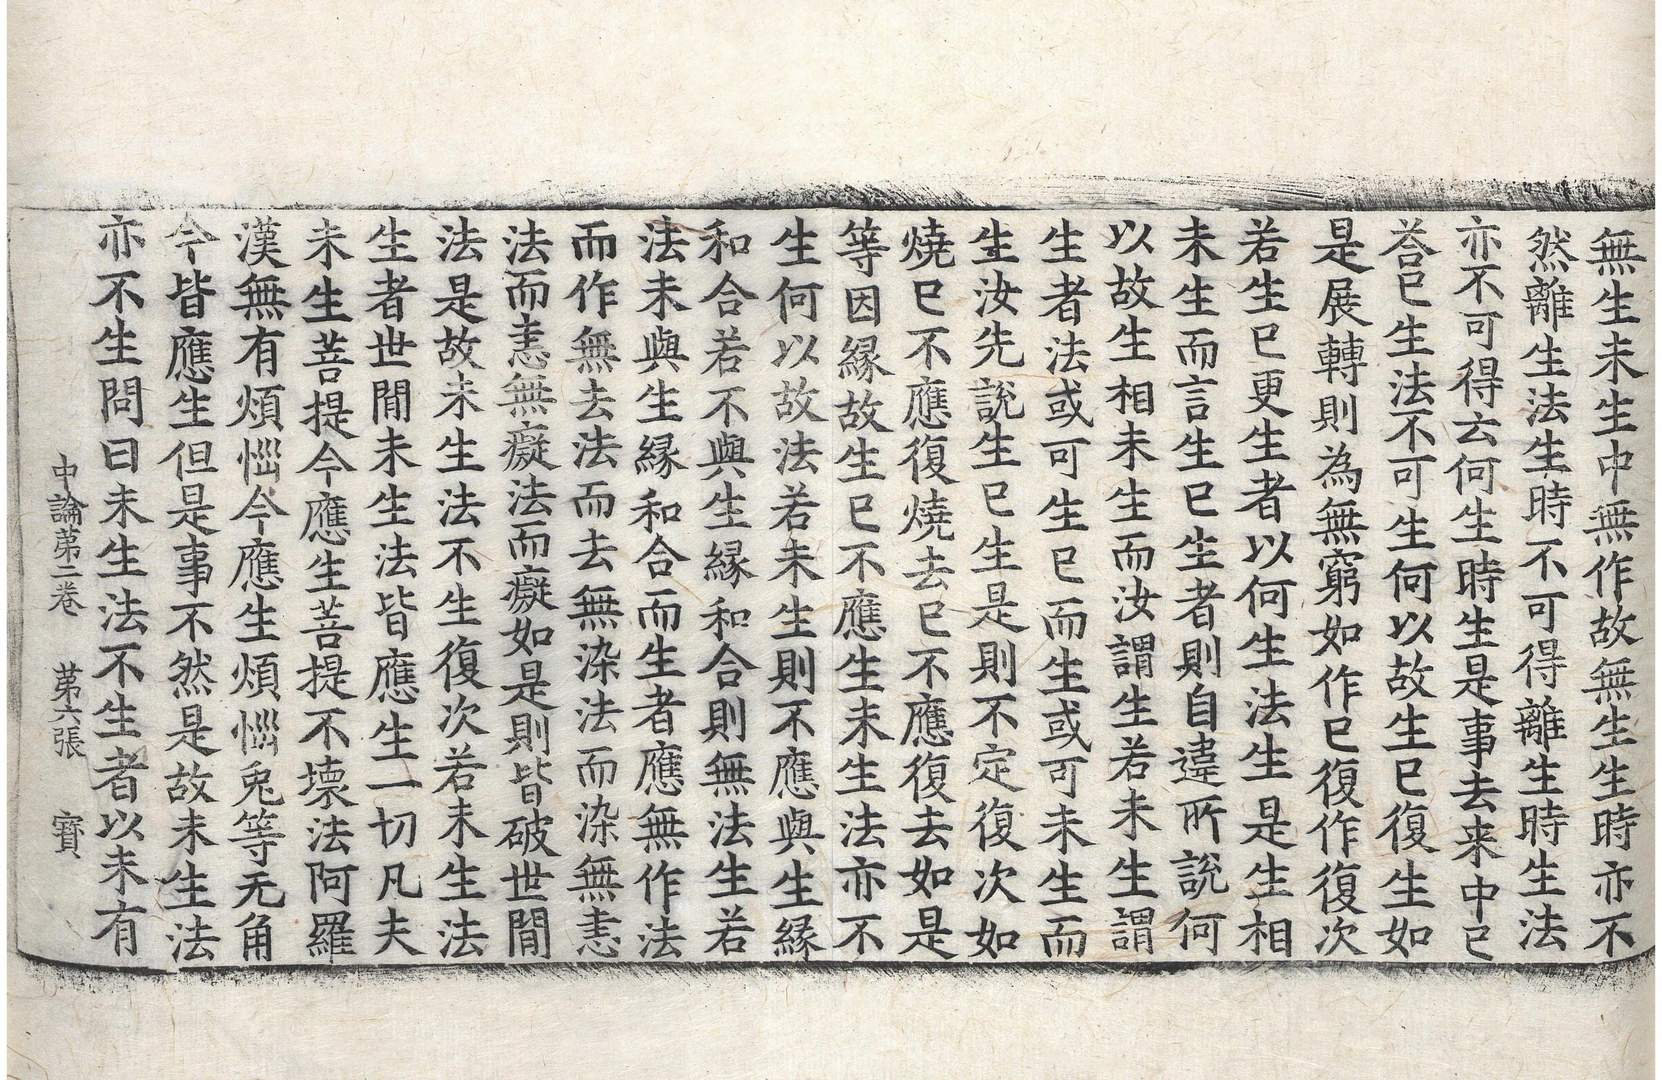 無生未生中無作故無生生時亦不
然離生法生時不可得離生時生法
亦不可得云何生時生是事去来中已
荅已生法不可生何以故生已復生如
是展轉則為無窮如作已復作復次
若生已更生者以何生法生是生相
未生而言生已生者則自違所說何
以故生相未生而汝謂生若未生謂
生者法或可生已而生或可未生而
生汝先說生已生是則不定復次如
燒已不應復燒去已不應復去如是
等因縁故生已不應生未生法亦不
生何以故法若未生則不應與生縁
和合若不與生縁和合則無法生若
法未與生縁和合而生者應無作法
而作無去法而去無染法而染無恚
法而恚無癡法而癡如是則皆破世間
法是故未生法不生復次若未生法
生者世間未生法皆應生一切凡夫
未生菩提今應生菩提不壞法阿羅
漢無有煩惱今應生煩惱兎等无角
今皆應生但是事不然是故未生法
亦不生問曰未生法不生者以未有
中論第二卷 第六張 寶